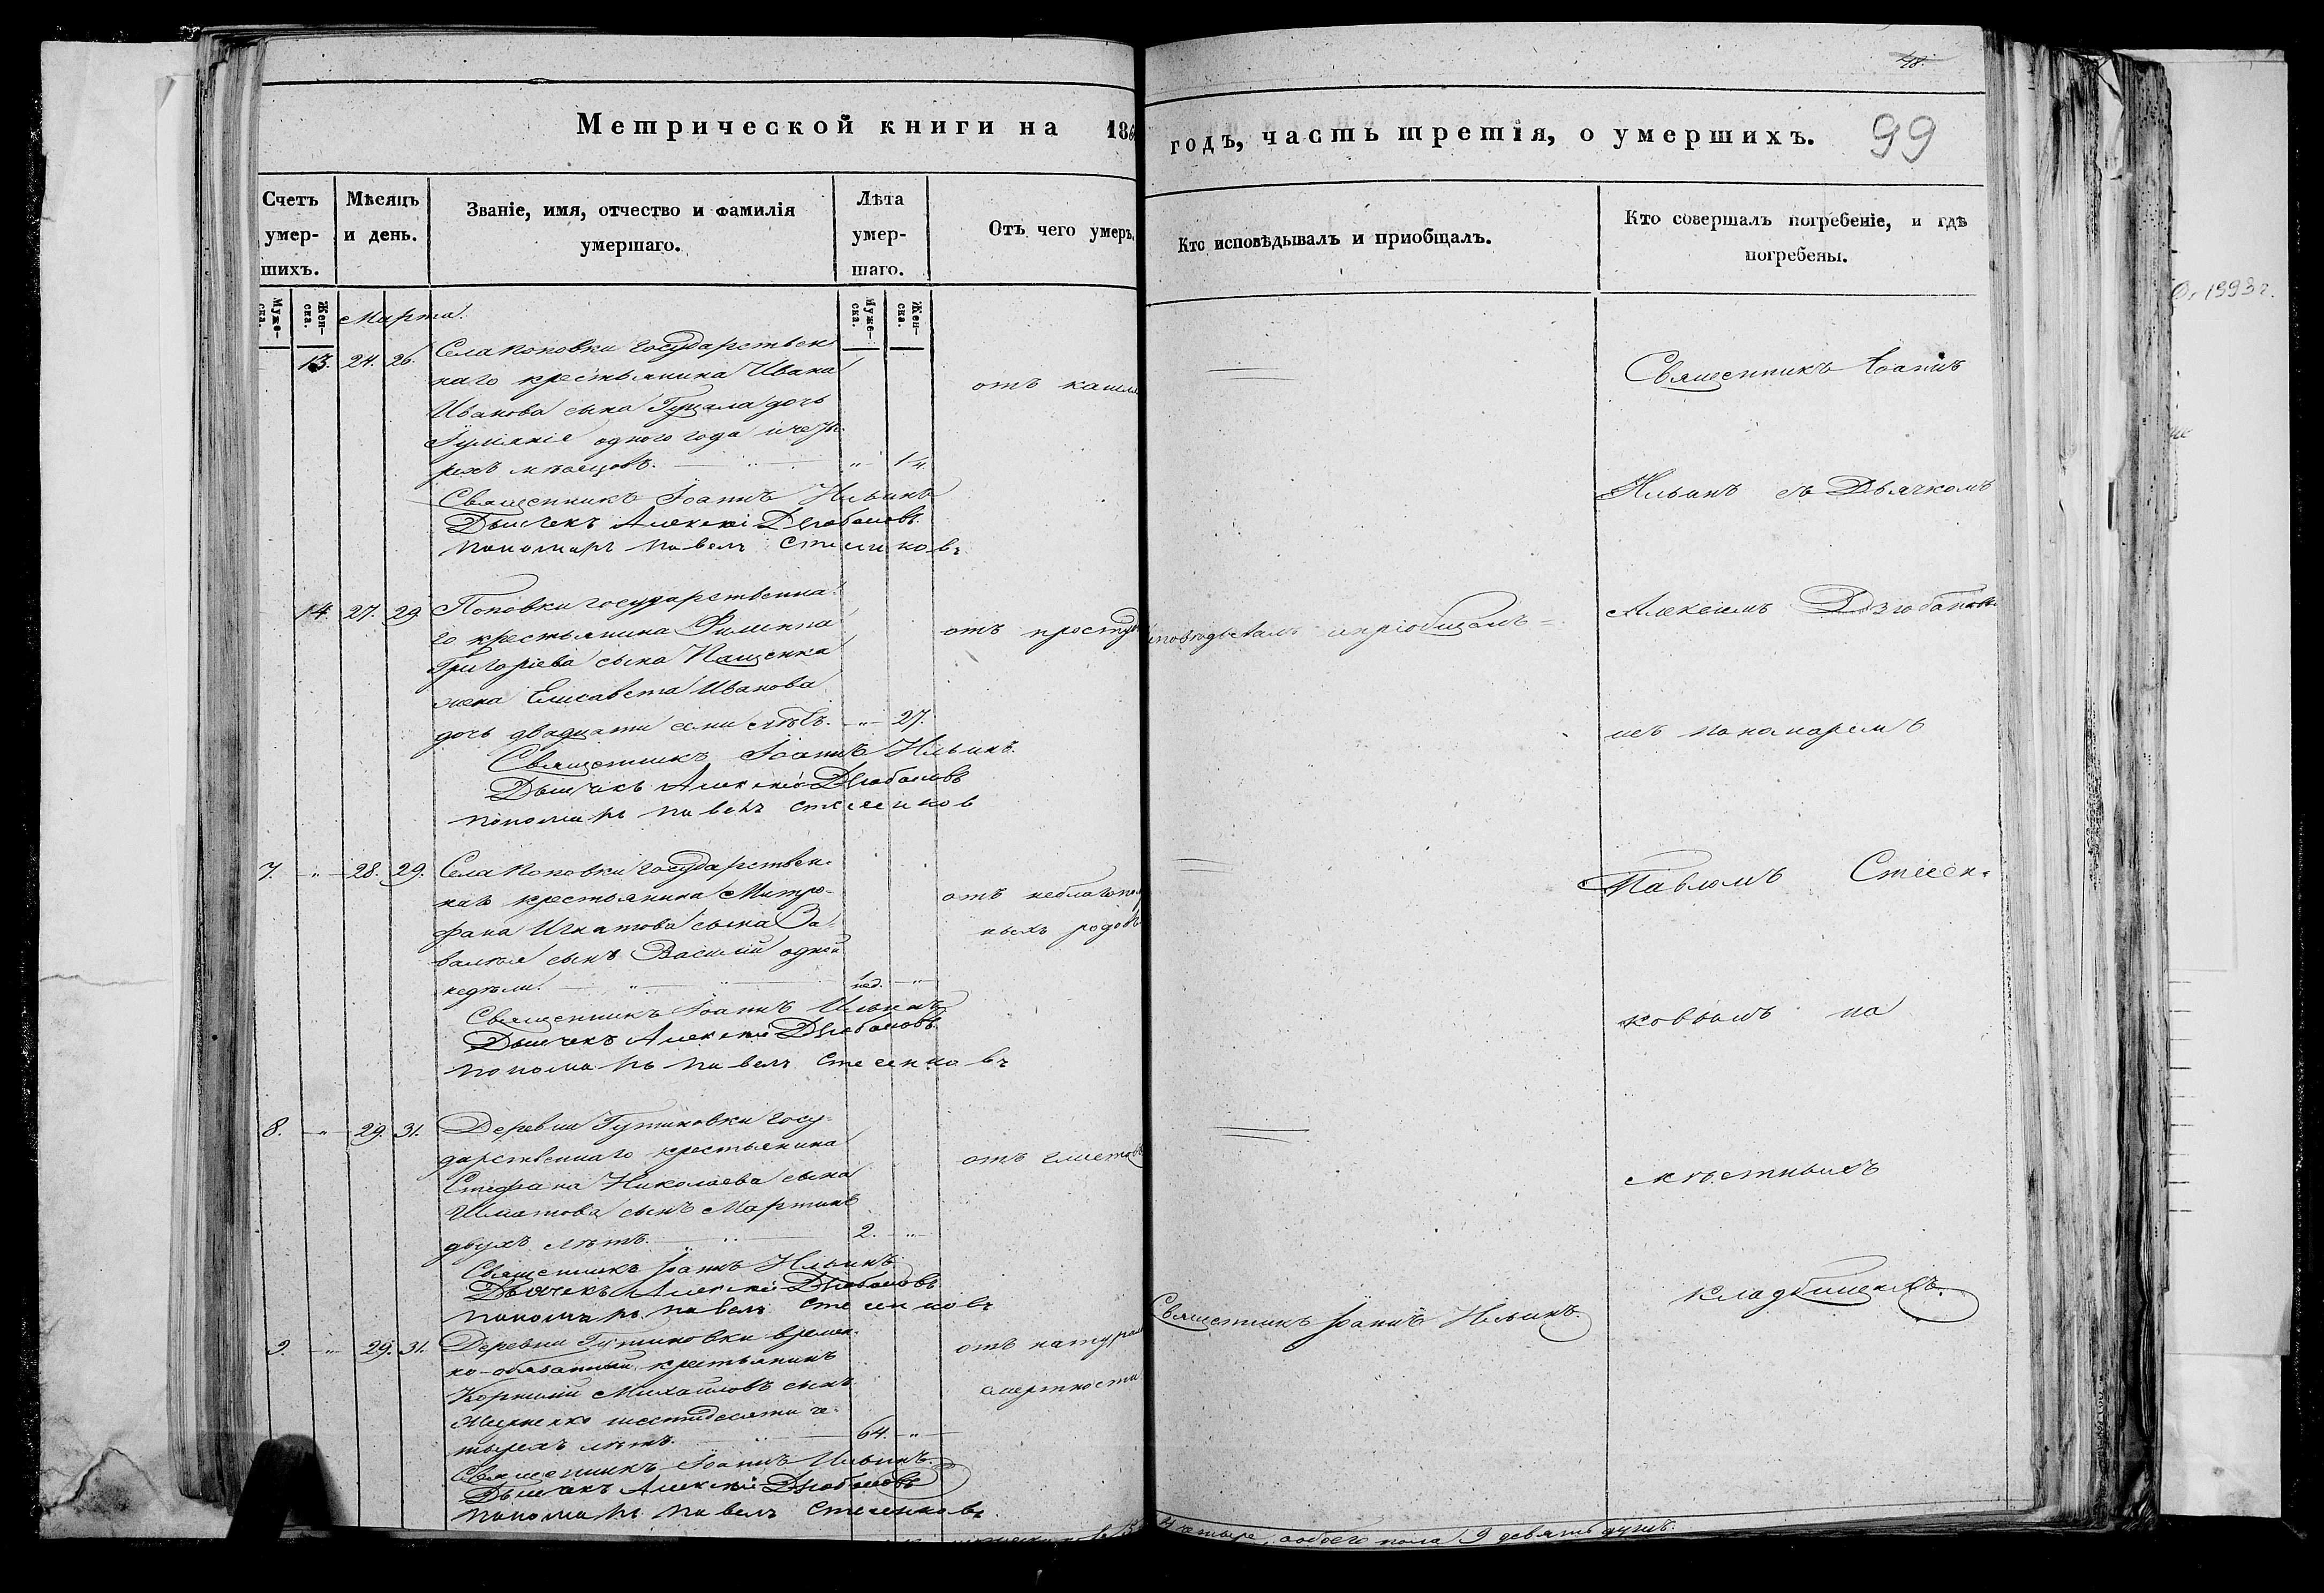 48.
99
Метрической книги на 186
годъ, часть третія, о умершихъ.
Счетъ умер-шихъ.
Мѣсяцъ и день.
Званіе, имя, отчество и фамилія умершаго.
Лѣта умер-шаго.
Отъ чего умеръ.
Кто исповѣдывалъ и приобщалъ.
Кто совершалъ погребеніе, и гдѣ погребены.
Муже-ска.
Жен-ска.
Муже-ска.
Жен-ска.
Марта.
13. 24. 26. Села Поповки государствен
наго крестьянина Ивана
Иванова сына дочь
одного года и четы-
рехъ мѣсяцовъ. 1 4
отъ кашля
Священникъ Іоаннъ Ильинъ
Дьячекъ Алексѣй Дзюбановъ
Пономарь Павелъ Стеценковъ
14. 27. 29. Поповки государственна
го крестьянина Филиппа
Григоріева сына Пащенка
жена Елисавета Иванова
дочь двадцати семи лѣтъ. 27.
отъ простуды
исповѣдыванъ и пріобщанъ
Священникъ Іоаннъ Ильинъ.
Дьячекъ Алексѣй Дзюбановъ
Пономарь Павелъ Стеценков
7. 28. 29. Села Поповки государствен-
наго крестьянина Митро-
фана Игнатова сына За-
сынъ Василій одной
недѣли. 1 нед.
отъ неблагопо
ныхъ родовъ
Священникъ Іоаннъ Ильинъ
Дьячекъ Алексѣй Дзюбановъ
Пономарь Павелъ Стеценковъ
8. 29. 31. Деревни Гутниковки госу-
дарственнаго крестьянина
Стефана Николаева сына
Шматова сынъ Мартинъ
двухъ лѣтъ. 2.
отъ глистовъ
Священникъ Іоаннъ Ильинъ
Дьячекъ Алексѣй Дзюбановъ
Пономарь Павелъ Стеценковъ
9. 29. 31. Деревни Гутниковки времен-
но-обязанный крестьянинъ
Корнилій Михайловъ сынъ
шестидесяти че-
тырехъ лѣтъ. 64.
отъ натурал
смертности
Священникъ Іоаннъ Ильинъ.
Дьячекъ Алексѣй Дзюбановъ
Пономарь Павелъ Стеценковъ
Священникъ Іоаннъ Ильинъ.
Священникъ Іоаннъ
Ильинъ съ Дьячкомъ
Алексіемъ Дзюбанов
и съ пономаремъ
Павломъ Стецен-
ковымъ на
мѣстныхъ
кладбищахъ.
четыре, обоего пола 9 девять душъ.
1993 г.